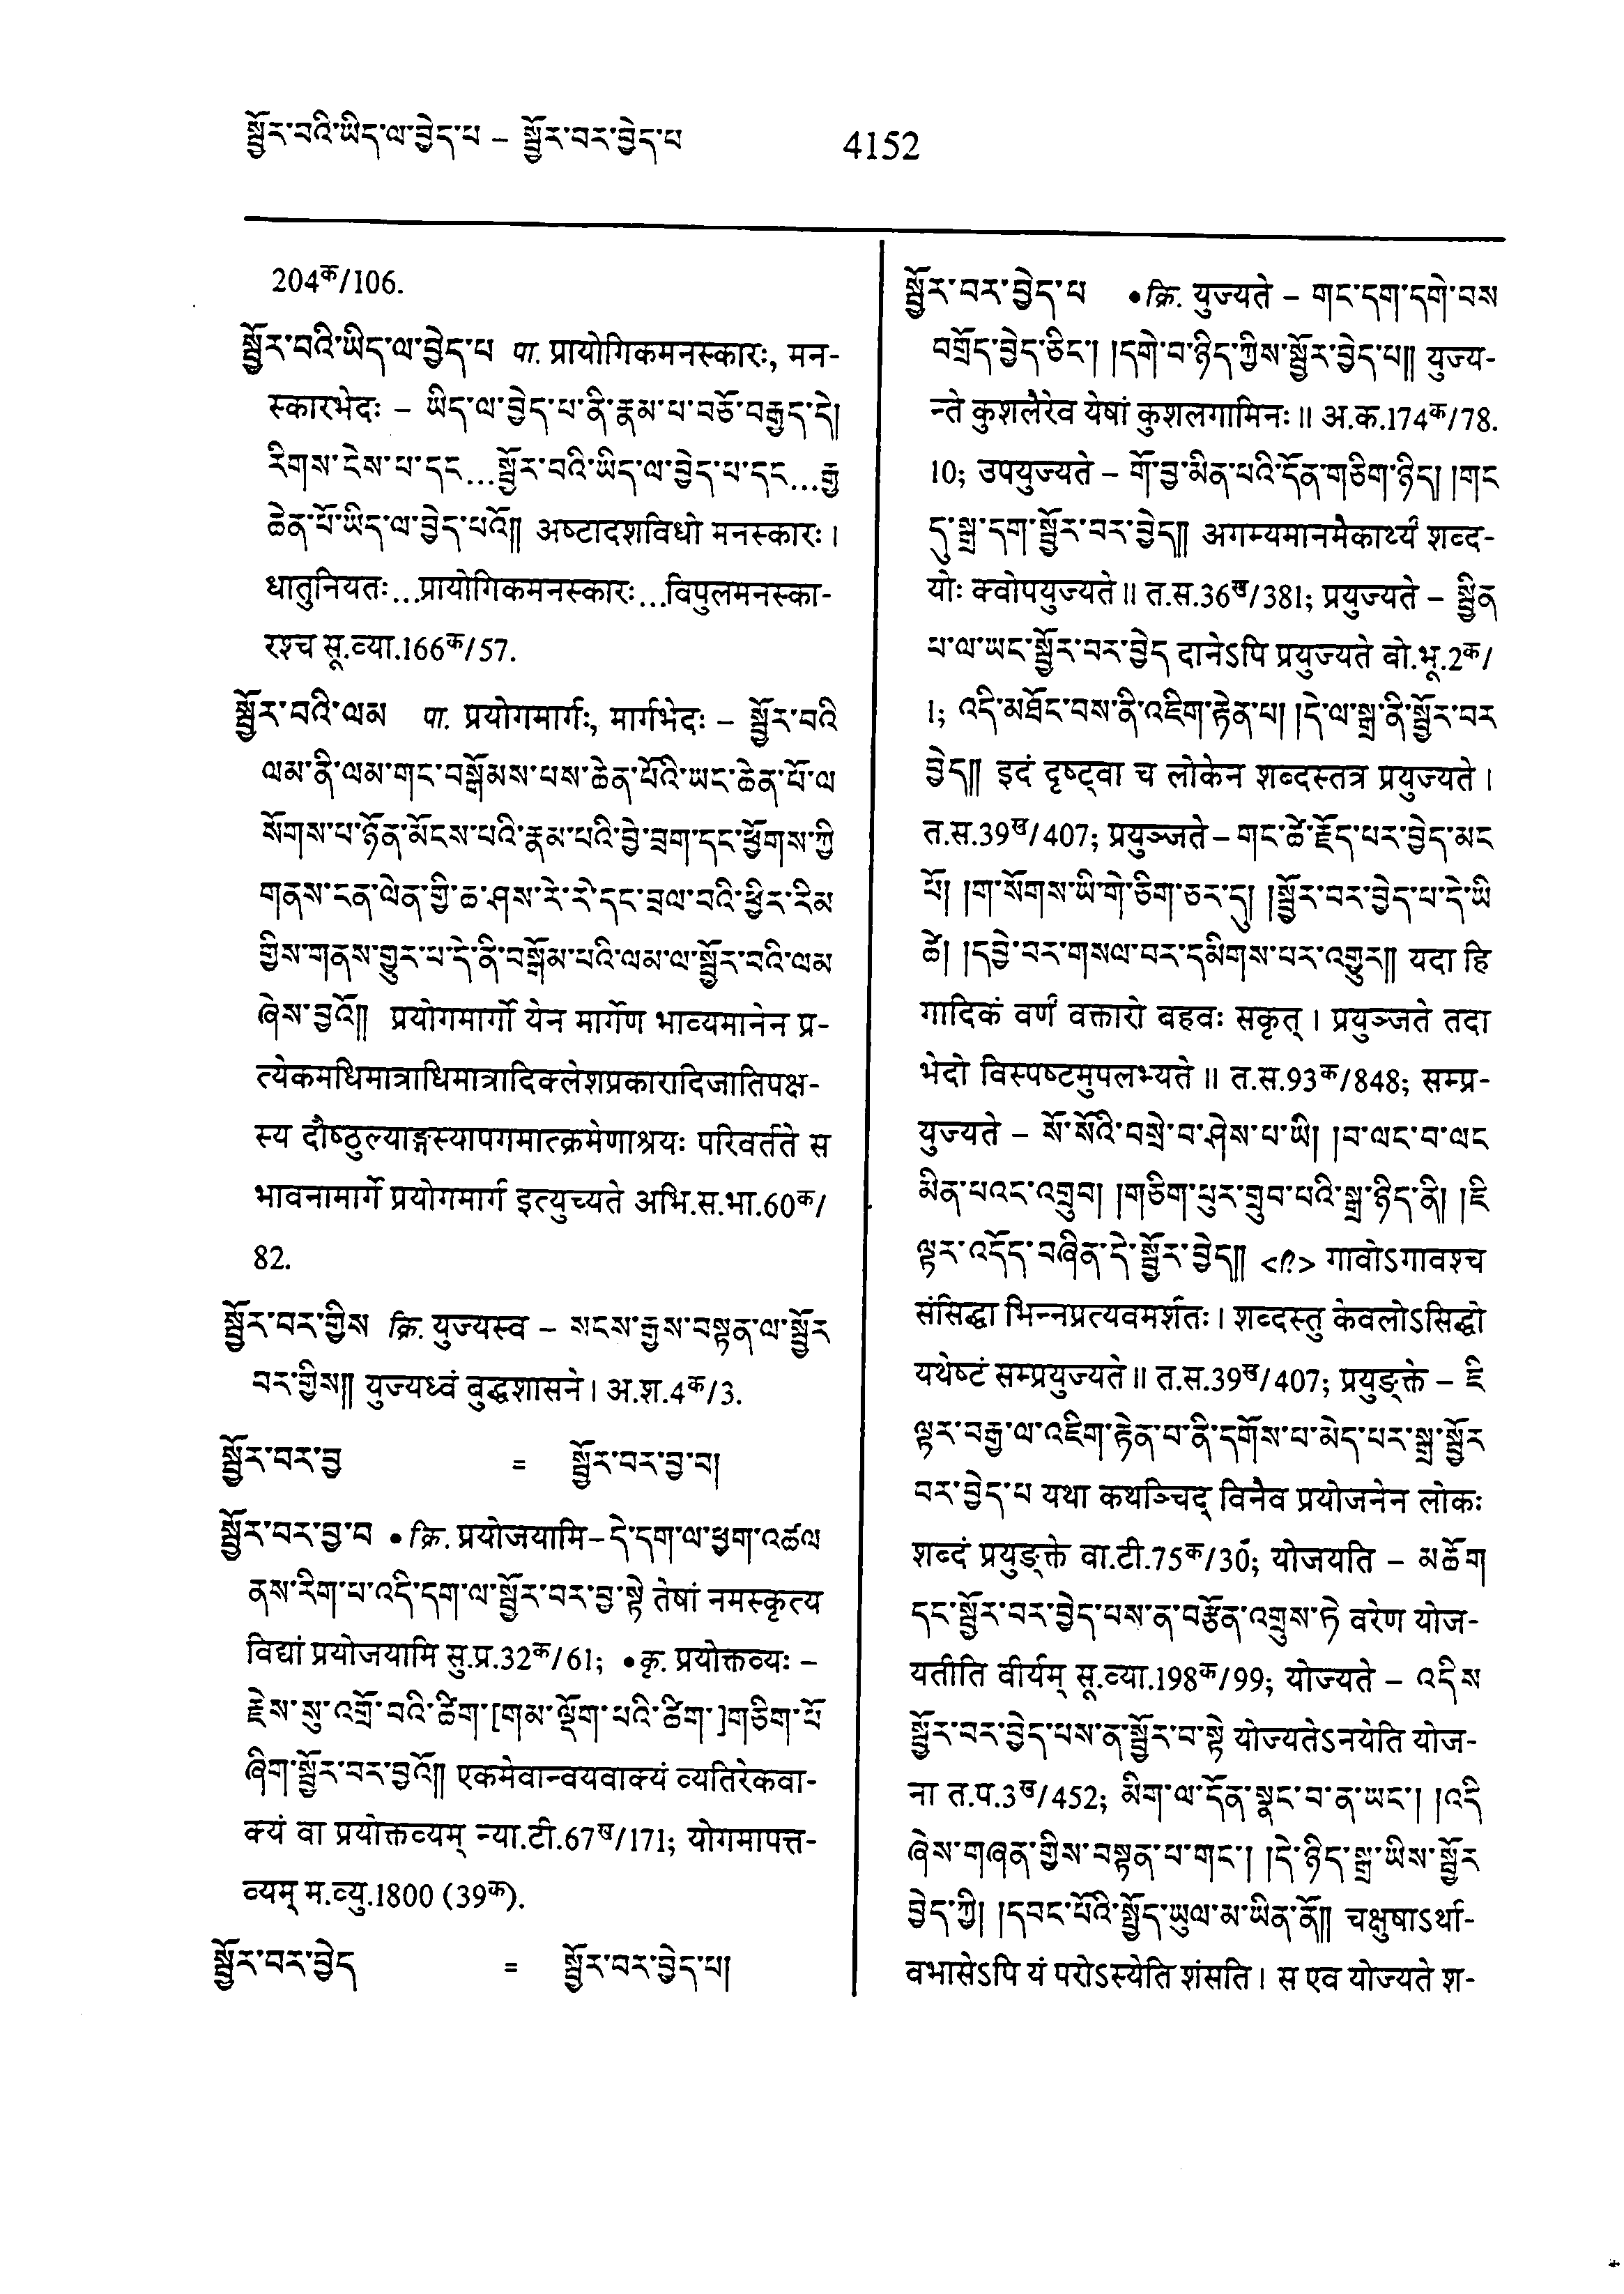 སྦྱོར་བའི་ཡིད་ལ་བྱེད་པ – སྦྱོར་བར་བྱེད་པ
4152
204क/106.
སྦྱོར་བའི་ཡིད་ལ་བྱེད་པ पा. प्रायोगिकमनस्कारः, मन-
स्कारभेदः – ཡིད་ལ་བྱེད་པ་ནི་རྣམ་པ་བཅོ་བརྒྱད་དེ།
རིགས་ངེས་པ་དང...སྦྱོར་བའི་ཡིད་ལ་བྱེད་པ་དང...རྒྱ
ཆེན་པོ་ཡིད་ལ་བྱེད་པའོ།། अष्टादशविधो मनस्कारः ।
धातुनियतः...प्रायोगिकमनस्कारः...विपुलमनस्का-
रश्च सू.व्या.166क/57.
སྦྱོར་བའི་ལམ पा. प्रयोगमार्गः, मार्गभेदः – སྦྱོར་བའི
ལམ་ནི་ལམ་གང་བསྒོམས་པས་ཆེན་པོའི་ཡང་ཆེན་པོ་ལ
སོགས་པ་ཉོན་མོངས་པའི་རྣམ་པའི་བྱེ་བྲག་དང་ཕྱོགས་ཀྱི
གནས་ངན་ལེན་གྱི་ཆ་ཤས་རེ་རེ་དང་བྲལ་བའི་ཕྱིར་རིམ
གྱིས་གནས་གྱུར་པ་དེ་ནི་བསྒོམ་པའི་ལམ་ལ་སྦྱོར་བའི་ལམ
ཞེས་བྱའོ།། प्रयोगमार्गो येन मार्गेण भाव्यमानेन प्र-
त्येकमधिमात्राधिमात्रादिक्लेशप्रकारादिजातिपक्ष-
स्य दौष्ठुल्याङ्गस्यापगमात्क्रमेणाश्रयः परिवर्तते स
भावनामार्गे प्रयोगमार्ग इत्युच्यते अभि.स.भा.60क/
82.
སྦྱོར་བར་གྱིས क्रि. युज्यस्व – སངས་རྒྱས་བསྟན་ལ་སྦྱོར
བར་གྱིས།། युज्यध्वं बुद्धशासने । अ.श.4क/3.
སྦྱོར་བར་བྱ = སྦྱོར་བར་བྱ་བ།
སྦྱོར་བར་བྱ་བ •क्रि. प्रयोजयामि–དེ་དག་ལ་ཕྱག་འཚལ
ནས་རིག་པ་འདི་དག་ལ་སྦྱོར་བར་བྱ་སྟེ तेषां नमस्कृत्य
विद्यां प्रयोजयामि सु.प्र.32क/61; •कृ. प्रयोक्तव्यः –
རྗེས་སུ་འགྲོ་བའི་ཚིག་[གམ་ལྡོག་པའི་ཚིག་]གཅིག་པོ
ཞིག་སྦྱོར་བར་བྱའོ།། एकमेवान्वयवाक्यं व्यतिरेकवा-
क्यं वा प्रयोक्तव्यम् न्या.टी.67ख/171; योगमापत्त-
व्यम् म.व्यु.1800 (39क).
སྦྱོར་བར་བྱེད = སྦྱོར་བར་བྱེད་པ།
སྦྱོར་བར་བྱེད་པ •क्रि. युज्यते – གང་དག་དགེ་བས
བགྲོད་བྱེད་ཅིང་། །དགེ་བ་ཉིད་ཀྱིས་སྦྱོར་བྱེད་པ།། युज्य-
न्ते कुशलैरेव येषां कुशलगामिनः ॥ अ.क.174क/78.
10; उपयुज्यते – གོ་བྱ་མིན་པའི་དོན་གཅིག་ཉིད། །གང
དུ་སྒྲ་དག་སྦྱོར་བར་བྱེད།། अगम्यमानमैकार्थ्यं शब्द-
योः क्वोपयुज्यते ॥ त.स.36ख/381; प्रयुज्यते – སྦྱིན
པ་ལ་ཡང་སྦྱོར་བར་བྱེད दानेऽपि प्रयुज्यते बो.भू.2क/
1; འདི་མཐོང་བས་ནི་འཇིག་རྟེན་པ། །དེ་ལ་སྒྲ་ནི་སྦྱོར་བར
བྱེད།། इदं दृष्ट्वा च लोकेन शब्दस्तत्र प्रयुज्यते ।
त.स.39ख/407; प्रयुञ्जते – གང་ཚེ་རྗོད་པར་བྱེད་མང
པོ། །ག་སོགས་ཡི་གེ་ཅིག་ཅར་དུ། །སྦྱོར་བར་བྱེད་པ་དེ་ཡི
ཚེ། །དབྱེ་བར་གསལ་བར་དམིགས་པར་འགྱུར།། यदा हि
गादिकं वर्णं वक्तारो बहवः सकृत् । प्रयुञ्जते तदा
भेदो विस्पष्टमुपलभ्यते ॥ त.स.93क/848; सम्प्र-
युज्यते – སོ་སོའི་བསྲེ་བ་ཤེས་པ་ཡི། །བ་ལང་བ་ལང
མིན་པའང་འགྲུབ། །གཅིག་པུར་གྲུབ་པའི་སྒྲ་ཉིད་ནི། །ཇི
ལྟར་འདོད་བཞིན་དེ་སྦྱོར་བྱེད།། <?> गावोऽगावश्च
संसिद्धा भिन्नप्रत्यवमर्शतः । शब्दस्तु केवलोऽसिद्धो
यथेष्टं सम्प्रयुज्यते ॥ त.स.39ख/407; प्रयुङ्क्ते – ཇི
ལྟར་བརྒྱ་ལ་འཇིག་རྟེན་བ་ནི་དགོས་པ་མེད་པར་སྒྲ་སྦྱོར
བར་བྱེད་པ यथा कथञ्चिद् विनैव प्रयोजनेन लोकः
शब्दं प्रयुङ्क्ते वा.टी.75क/30; योजयति – མཆོག
དང་སྦྱོར་བར་བྱེད་པས་ན་བརྩོན་འགྲུས་ཏེ वरेण योज-
यतीति वीर्यम् सू.व्या.198क/99; योज्यते – འདིས
སྦྱོར་བར་བྱེད་པས་ན་སྦྱོར་བ་སྟེ योज्यतेऽनयेति योज-
ना त.प.3ख/452; མིག་ལ་དོན་སྣང་བ་ན་ཡང་། །འདི
ཞེས་གཞན་གྱིས་བསྟན་པ་གང་། །དེ་ཉིད་སྒྲ་ཡིས་སྦྱོར
བྱེད་ཀྱི། །དབང་པོའི་སྤྱོད་ཡུལ་མ་ཡིན་ནོ།། चक्षुषाऽर्था-
वभासेऽपि यं परोऽस्येति शंसति । स एव योज्यते श-